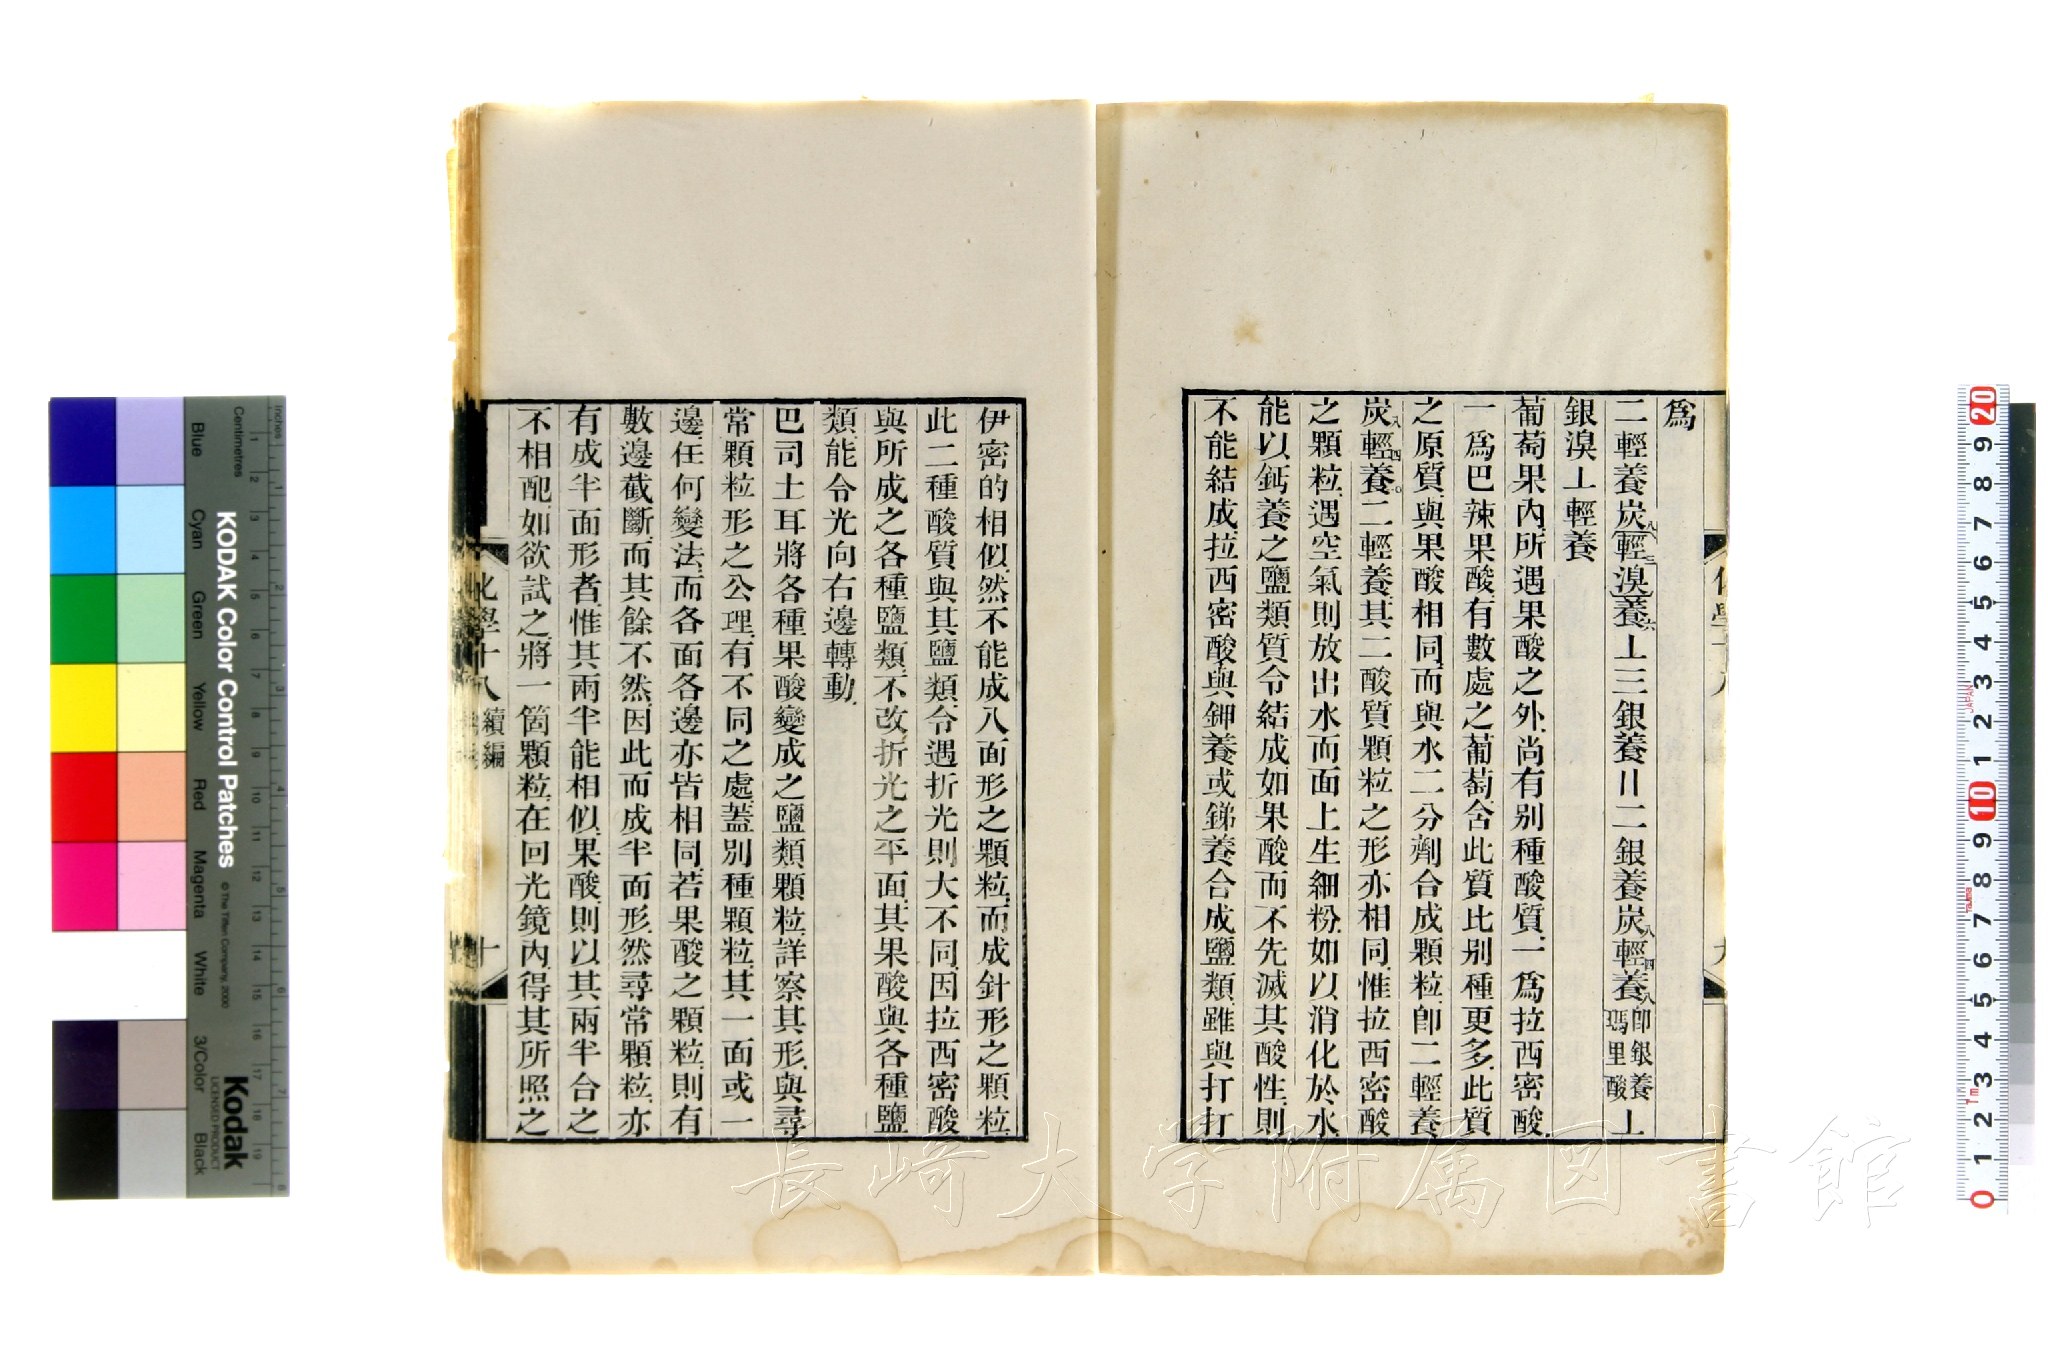 爲
二輕養炭八輕三溴養六⊥三銀養〢二銀養炭八輕四養八卽銀養瑪里酸⊥
銀溴⊥輕養
葡萄果內所遇果酸之外尚有別種酸質一爲拉西密酸
一爲巴辣果酸有數處之葡萄含此質比別種更多此質
之原質與果酸相同而與水二分劑合成顆粒卽二輕養
炭八輕四養一〇二輕養其二酸質顆粒之形亦相同惟拉西密酸
之顆粒遇空氣則放出水而面上生細粉如以消化於水
能以鈣養之鹽類質令結成如果酸而不先滅其酸性則
不能結成拉西密酸與鉀養或銻養合成鹽類雖與打打
伊密的相似然不能成八面形之顆粒而成針形之顆粒
此二種酸質與其鹽類令遇折光則大不同因拉西密酸
與所成之各種鹽類不改折光之平面其果酸與各種鹽
類能令光向右邊轉動
巴司土耳將各種果酸變成之鹽類顆粒詳察其形與尋
常顆粒形之公理有不同之處蓋別種顆粒其一面或一
邊任何變法而各面各邊亦皆相同若果酸之顆粒則有
數邊截斷而其餘不然因此而成半面形然尋常顆粒亦
有成半面形者惟其兩半能相似果酸則以其兩半合之
不相配如欲試之將一箇顆粒在回光鏡內得其所照之
化學十八 續編 十
長崎大学附属図書館
KODAK Color Control Patches
© The Tiffen Company, 2000
Kodak
LICENSED PRODUCT
Inches
Centimetres
Blue
Cyan
Green
Yellow
Red
Magenta
White
3/Color
Black